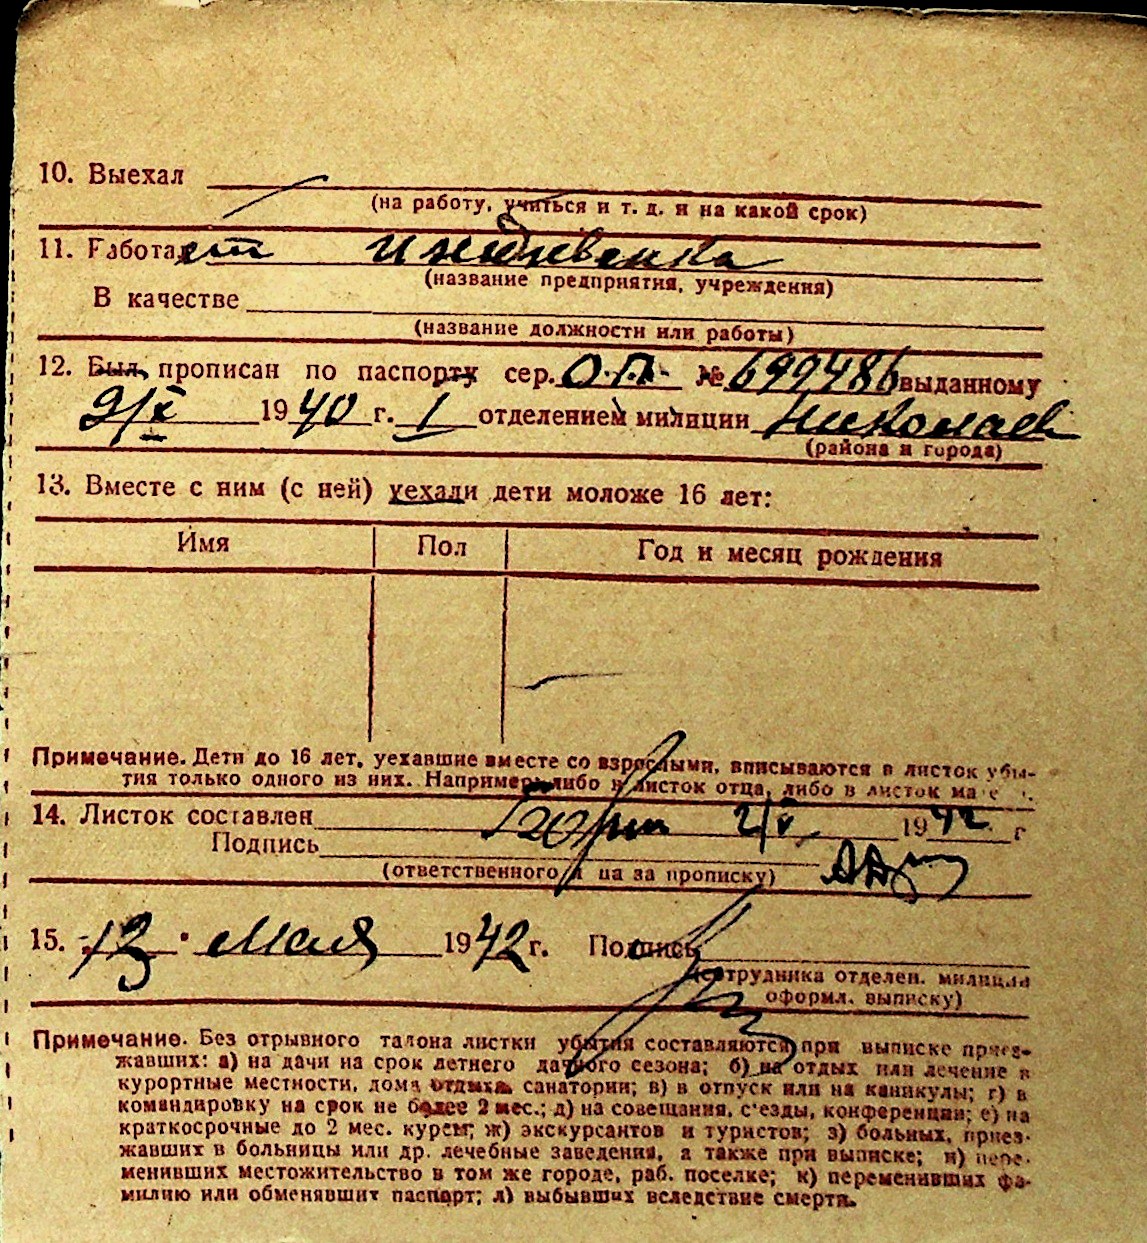 10. Выехал
(на работу, учиться и т. д. и на какой срок)
11. Работает иждивенка
(название предприятия, учреждения)
В качестве
(название должности или работы)
12. Был прописан по паспорту сер. О.П. № 699486 выданному
9/X 1940 г. 1 отделением милиции Николаев
(района и города)
13. Вместе с ним (с ней) уехали дети моложе 16 лет:
Имя Пол Год и месяц рождения
Примечание. Дети до 16 лет, уехавшие вместе со взрослыми, вписываются в листок убы-
тия только одного из них. Например либо в листок отца, либо в листок
14. Листок составлен 2/V 1942 г
Подпись
(ответственного за прописку)
15. 13 Мая 1942 г. Подпись
(сотрудника отделен. милиции
оформл. выписку)
Примечание. Без отрывного талона листки убытия составляются при выписке приез-
жавших: а) на дачи на срок летнего дачного сезона; б) на отдых или лечение в
курортные местности, дома отдыха, санатории; в) в отпуск или на каникулы; г) в
командировку на срок не более 2 мес.; д) на совещания, с'езды, конференции; е) на
краткосрочные до 2 мес. курсы; ж) экскурсантов и туристов; з) больных, приез-
жавших в больницы или др. лечебные заведения, а также при выписке; и) пере-
менивших местожительство в том же городе, раб. поселке; к) переменивших фа-
милию или обменявших паспорт; л) выбывших вследствие смерти.